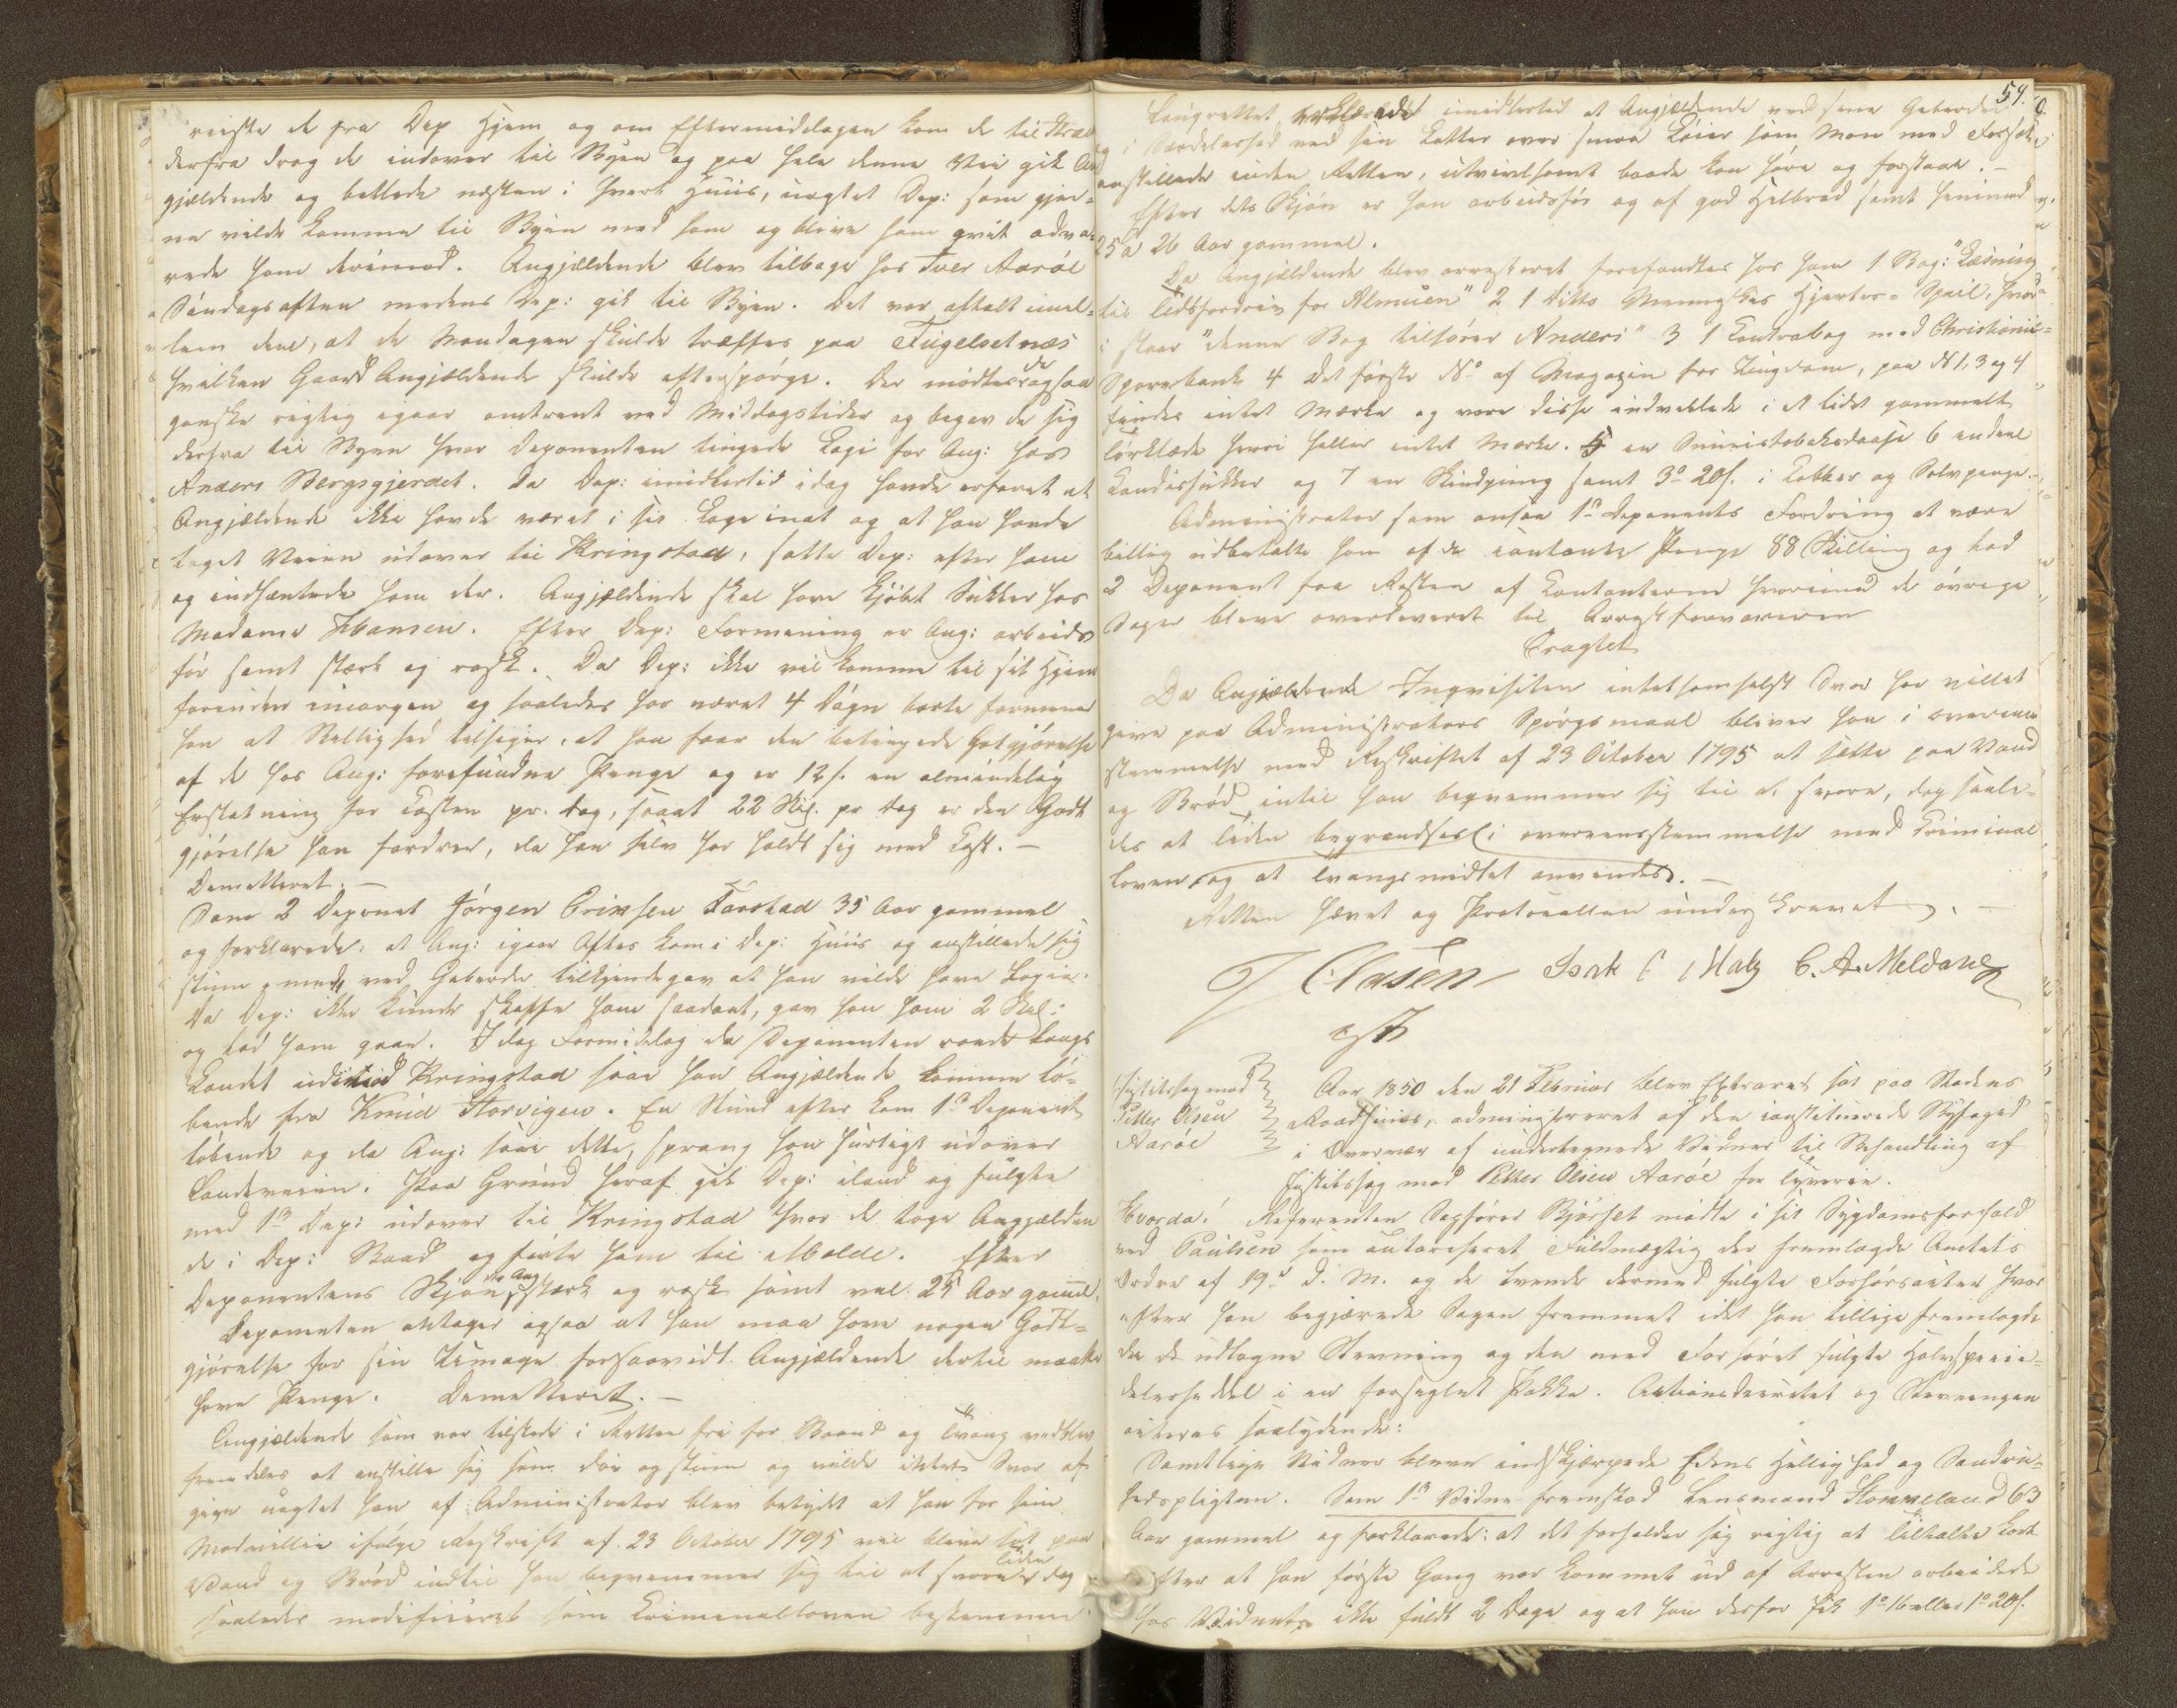 reiste de fra Dep Hjem og om Eftermiddagen kom de til
derfra drog de indover til Byen og paa hele denne Vei gik An
gjældende og betlede næsten i hvert Huus, uagtet Dep: som gjer=
ne vilde komme til Byen med ham og blive ham qvit adva=
rede ham derimod. Angjældende blev tilbage hos Iver Aaröe
Söndagsaften medens Dep: gik til Byen. Det var aftalt imel=
lem dem, at de Mandagen skulde træffes paa Fugelsetnæs
hvilken Gaard Angjældende skulde efterspörge. Der mödtes de ogsaa
ganske rigtig igaar omtrent ved Middagstider og begav de sig
derfra til Byen hvor Deponenten tingede Logi for Ang: hos
Anders Bergsgjerdet. Da Dep: imidlertid idag havde erfaret at
Angjældende ikke havde været i sit Loge inat og at han havde
taget Veien udover til Kringstad, satte Dep: efter ham
og indhentede ham der. Angjældende skal have kjöbt Sukker hos
Madame Hansen. Efter Dep: Formening er Ang: arbeids
för samt stærk og rask. Da Dep: ikke vil komme til sit Hjem
forinden imorgen og saaledes har været 4 Dögn borte formener
han at Billighed tilsiger, at han faar den betingede Godtgjörelse
af de hos Ang: forefundne Penge og er 12 s. en almindelig
Erstatning for Kosten pr. Dag, saaat 22 Skil. pr Dag er den Godt
gjörelse han fordrer, da han selv har holdt sig med Kost. —
Demitteret. —
Som 2 Deponent Jörgen Erinsen Farstad 35 Aar gammel
og forklarede: at Ang: igaar Aftes kom i Dep: Huus og anstillede sig
stum, men ved Geberder tilkjendegav at han vilde have Logie.
Da Dep: ikke kunde skaffe ham saadant, gav han ham 2 Skil:
og bad ham gaae. I dag Formiddag da Deponenten roede langs
Landet udimod Kringstad saae han Angjældende komme lö=
bende fra Knud Storvigen. En Stund efter kom 1ste Deponent
löbende og da Ang: saae dette, sprang han hurtigt udover
Landeveien. Paa Grund heraf gik Dep: iland og fulgte
med 1ste Dep: udover til Kringstad hvor de toge Angjælden
de i Dep: Baad og förte ham til Molde. Efter
Deponentens Skjön er Ang stærk og rask samt vel 25 Aar gamel.
Deponenten antager ogsaa at han maa have nogen Godt=
gjörelse for sin Umage forsaavidt Angjældende dertil maatte
have Penge. Demitteret. —
Angjældende som var tilstede i Retten fri for Baand og Tvang vedblev
fremdeles at anstille sig som döv og stum og vilde intet Svar af
give uagtet han af Administrator blev betydet at han for sin
Modvillie ifölge Reskript af 23 October 1795 vil blive sat paa
Vand og Bröd indtil han beqvemmer sig til at svare, dog Tiden
saaledes modificeret som Criminalloven bestemmer.
59.
Laugrettet erklærede imidlertid at Angjældende ved sine Geberder
og i Særdeleshed ved sin Latter over smaa Löier som man med Forsæt
anstillede inden Retten, utvivlsomt baade kan höre og forstaae. —
Efter dets Skjön er han arbeidsför og af god Helbred samt henimod
25 à 26 Aar gammel.
Da Angjældende blev arresteret forefandtes hos ham 1 Bog: "Læsning
til Tidsfordriv for Almuen" 2 1 Ditto Menneskes Hjertes= Speil, hvor=
i staar "denne Bog tilhörer Anders" 3 1 Contrabog med Christiania=
Sparebank 4 Det förste No af Magazin for Ungdom, paa N 1, 3 og 4
findes intet Mærke og vare disse indviklede i et lidet gammelt
Törklæde hvori heller intet Mærke. 5 en Snuustobaksdaase 6 endeel
Kandissukker og 7 en Skindpung samt 3o 20 s. i Kobber og Sölvpenge.
Administrator som ansaa 1ste Deponents Fordring at være
billig udbetalte ham af de contante Penge 88 Skilling og lod
2 Deponent faa Resten af Contanterne hvorimod de övrige
Sager bleve overleveret til Arrestforvareren
Eragtet
Da Angjældende Inqvisiten intetsomhelst Svar har villet
give paa Administrators Spörgsmaal bliver han i overeens
stemmelse med Reskriftet af 23 October 1795 at sætte paa Vand
og Bröd intil han beqvemmer sig til at svare, dog saale=
des at Tiden begrændses (i overeensstemmelse med Criminal
loven) og at Tvangsmidlet anvendes. —
Retten hævet og Protocollen underskrevet. —
Clasen Isak C. A. Meldahl
cst
Justitssag mod
Petter Olsen
Aaröe
Aar 1850 den 21 Februar blev Extraret sat paa Stadens
Raadhuus, administreret af den constituerede Byfoged
i Overvær af undertegnede Vidner til Behandling af
Justitssag mod Petter Olsen Aaröe for Tyverie.
Hvorda! Referenten Sagförer Björset mödte i sit Sygdomsforfald
ved Paulsen som autoriseret Fuldmægtig der fremlagde Amtets
Ordre af 19de d. M. og de tvende dermed fulgte Forhörsacter hvor
efter han begjærede Sagen fremmet idet han tillige fremlagde
de udtagne Stevning og den med Forhöret fulgte Halvspecie=
dalerseddel i en forseglet Pakke. Actionsdecretet og Stevningen
acteres saalydende:
Samtlige Vidner bleve indskjærpede Edens Hellighed og Sandru=
hedspligten. Som 1ste Vidne fremstod Lensmand Stormeland 63
Aar gammel og forklarede: at det forholder sig rigtig at Tiltalte kort
efter at han förste Gang var kommet ud af Arresten arbeidede
hos Vidnet ikke fuldt 2 Dage og at han derfor fik 1o 16 eller 1o 20 s.